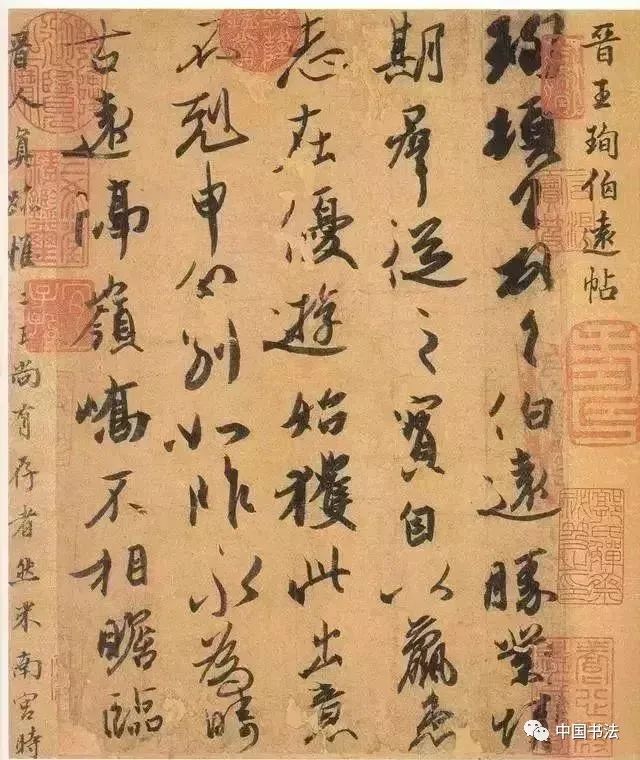 晋王珣伯遠帖
珣頓首頓首伯遠勝業情
期羣從之寳自以羸患
志在優遊始獲此出意
不剋申分別如昨永為疇
古遠隔嶺嶠不相瞻臨
晋人真跡惟二王尚有存者然米南宮時
中国书法